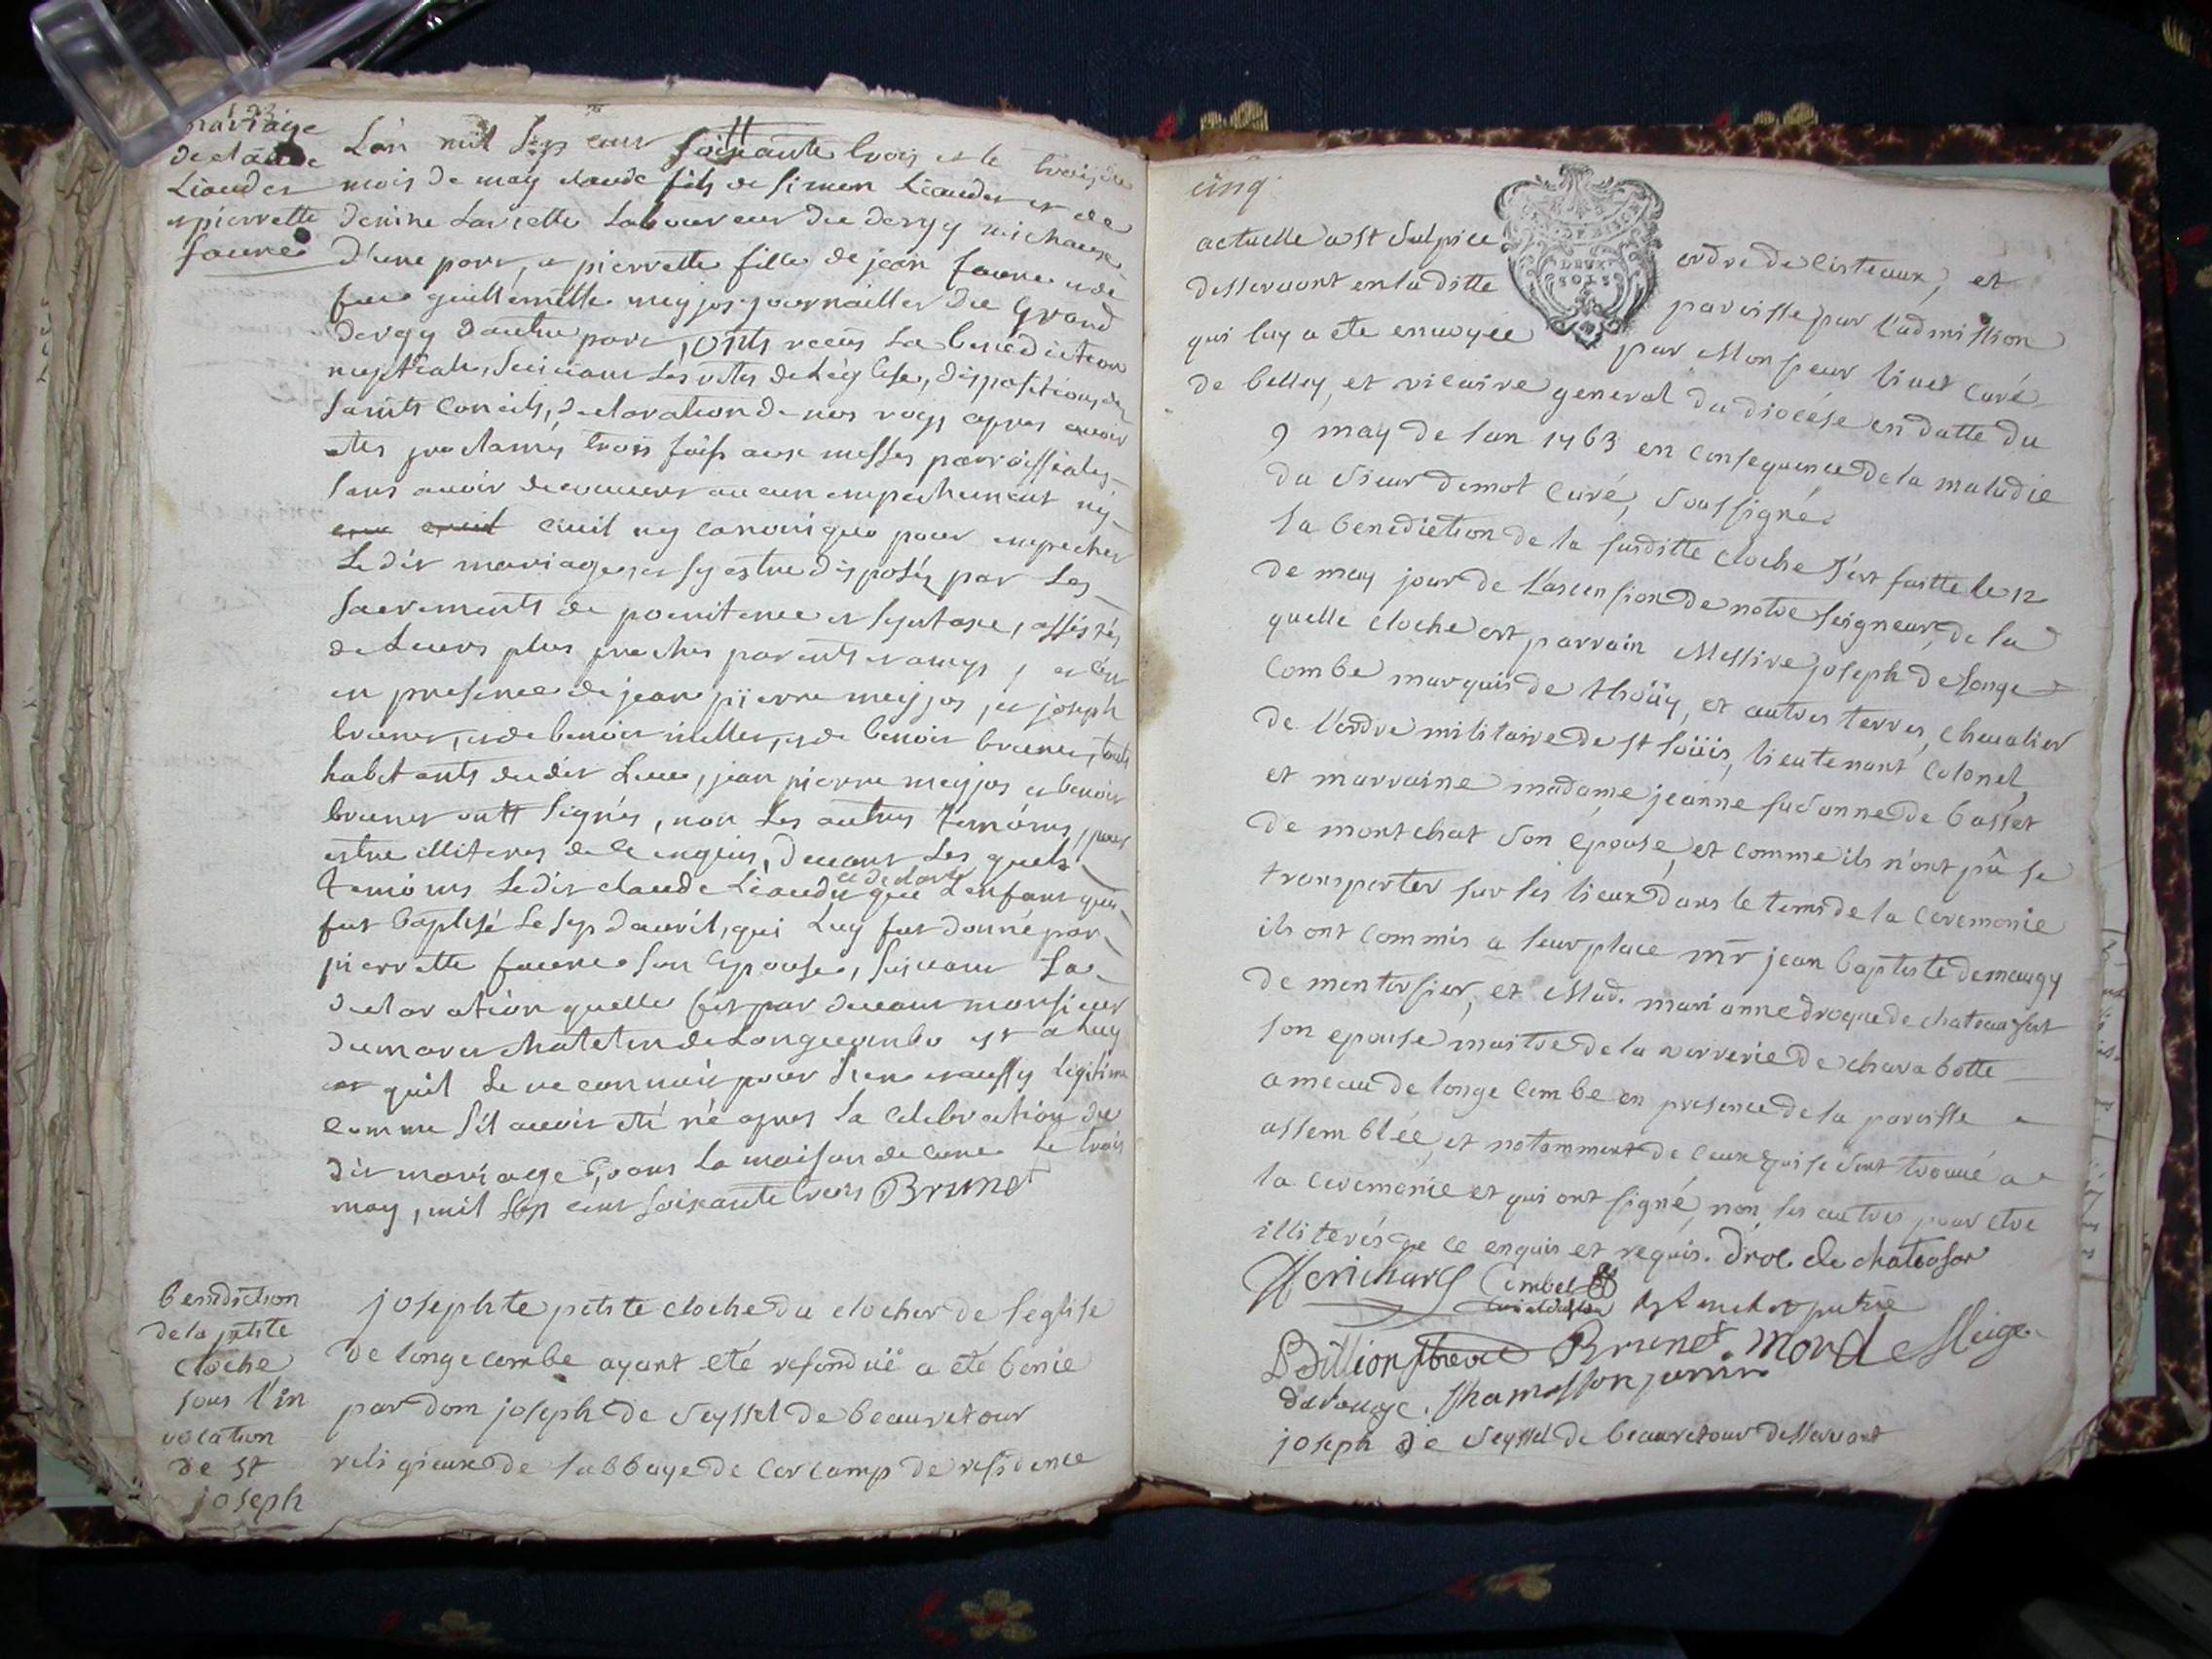 mariage
de claude
Liaudet
et pierrette
faure
L'an mil sept cent soixante trois et le trois du
mois de may claude fils de simon Liaudet et de
denine Laviette Laboureur du dergy michaux
D'une part, et pierrette fille de jean faure et de
feue guillemette meyjos journaillier du Grand
dergy d'autre part, Onts reçus La bénédiction
nuptiale, suivant Les rites de L'église, dispositions des
saints Concils, déclaration de nos roys appres avoir
étés proclamés trois fois aux messes parroissiales
sans avoir decouvert aucun empechement ny
civil ny canonique pour empecher
Le dit mariage, et sy estre disposés par Les
sacrements de poenitence et , assistés
de Leurs plus proches parents et amys, et
en presence de jean pierre meyjos, et joseph
brunet, et de benoit millet, et de benoit brunet, touts
habitants dudit Lieu, jean pierre meyjos et benoit
brunet ontt signés, non Les autres temoins, pour
estre illiterés de ce enquis, Devant Les quels
temoins Ledit claude Liaudet a declaré que L'enfant qui
fut baptisé Le sept d'avril, qui Luy fut donné par
pierrette faure son Epouse, suivant La
declaration quelle fit par devant monsieur
dumarest chatelain de Longecombe est a Luy
et quil Le reconnoit pour sien et aussy Legitime
comme s'il avoit été né apres La celebration du
dit mariage, dans La maison de cure Le trois
may, mil sept cent soixante trois Brunet
benediction
de la petite
cloche
sous l'in
vocation
de st
joseph
josephte petite cloche du clocher de l'eglise
de longecombe ayant eté refonduë a été benie
par dom joseph de seyssel de beauretour
religieux de l'abbaye de cercamp de residence
cinq.
DEUX
SOLS
actuelle a st Sulpice ordre de Cisteaux, et
desservant en la ditte paroisse par l'admission
qui luy a eté envoyée par Monsieur Curé
de belley, et vicaire general du diocése en datte du
9 may de l'an 1763 en consequence de la maladie
du sieur demot Curé, soussigné
la benediction de la susditte cloche s'est faitte le 12
de may jour de l'ascension de notre seigneur, de la
quelle cloche est parrain Messire joseph de longe
Combe marquis de thoüy, et autres terres, chevalier
de l'ordre militaire de st loüis, lieutenant Colonel,
et marraine madame jeanne de basset
de montchat son Epouse, et comme ils n'ont pû se
transporter sur les lieux dans le tems de la Ceremonie
ils ont Commis a leur place mr jean baptiste demaugy
de montersier, et Mad. marianne drogue de chateaufort
son epouse maitre de la verrerie de charabotte
ameau de longe Combe en presence de la paroisse
assemblée, et notamment de Ceux qui se sont trouvé a
la Ceremonie et qui ont signé, non les autres pour etre
illiterés de ce enquis et requis. Droc de chateofor
Cimbel
Billion Brunet. Mord
Thamasson junior
joseph de seyssel de beauretour desservant